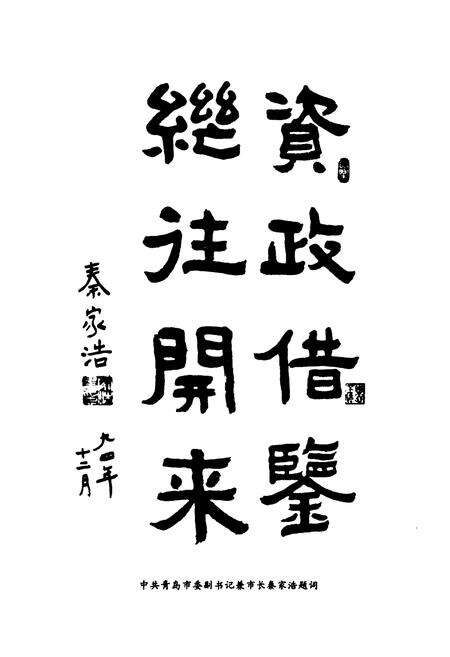 資政借鑒
繼往開来
秦家浩
九四年
十二月
中共青岛市委副书记兼市长秦家浩题词